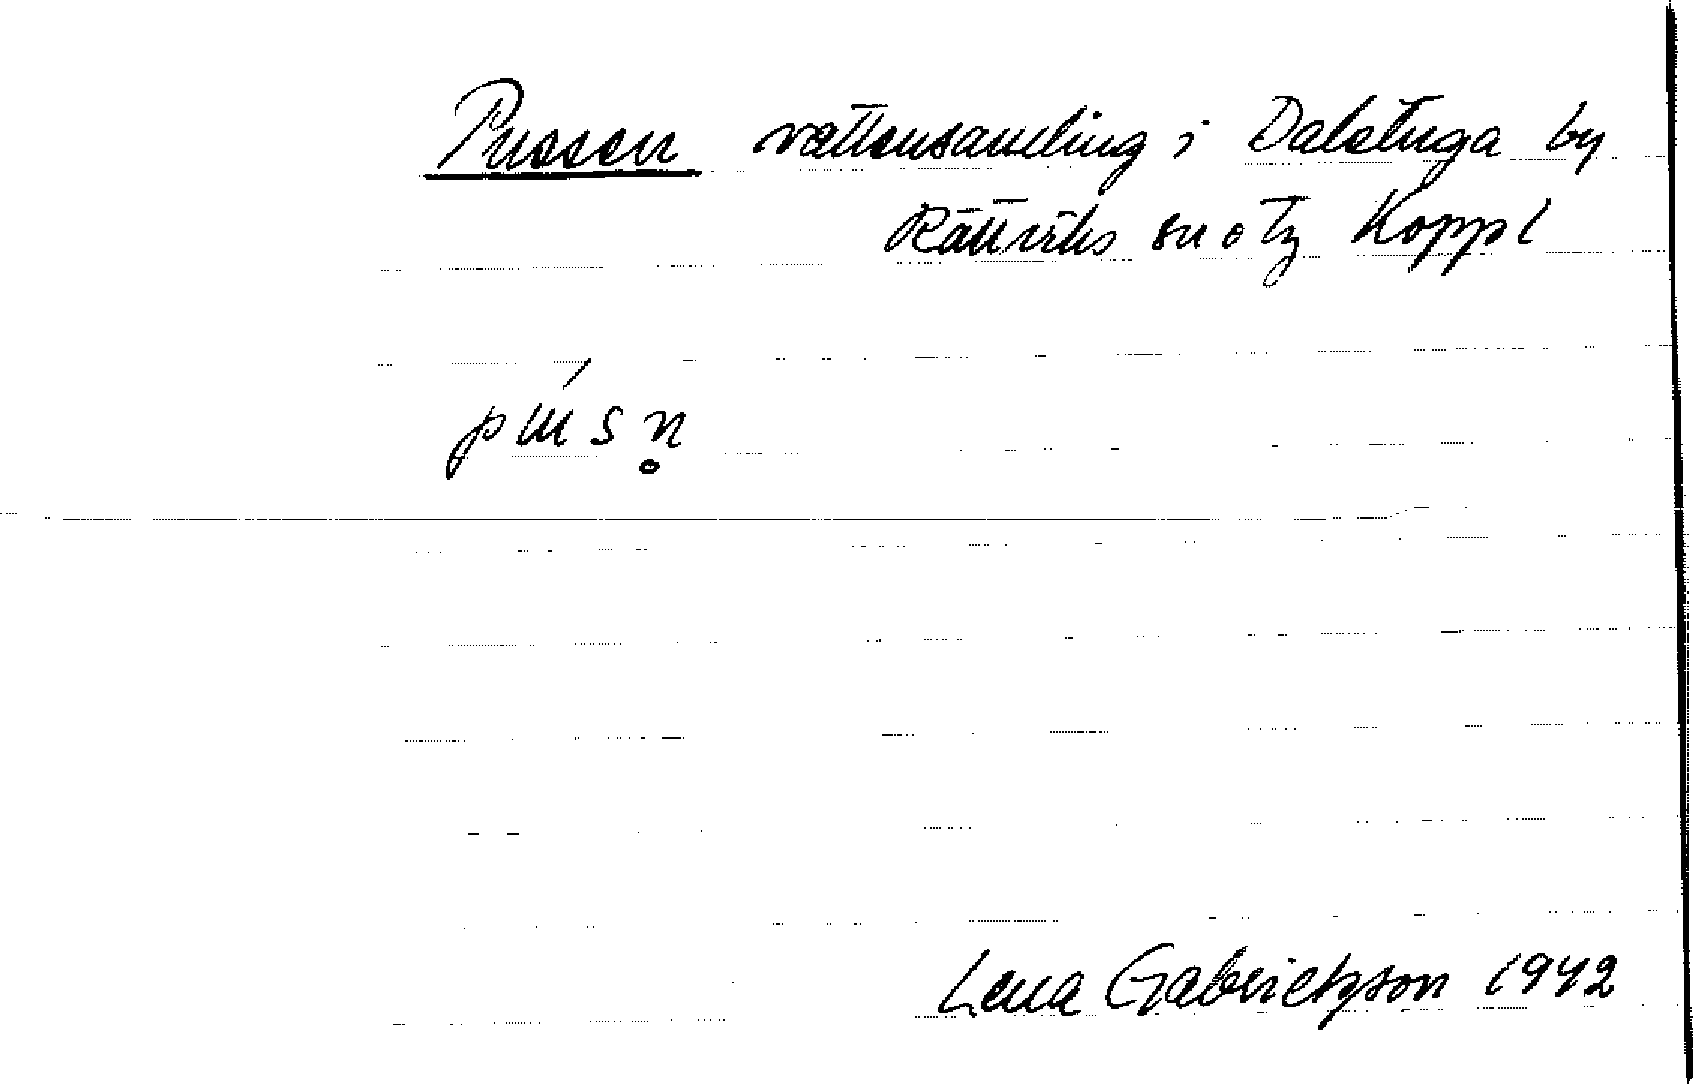 Pussen vattensamling i Dalstuga by
Rättviks sn o tg Koppl
pusn̥
Lena Gabrielsson 1942